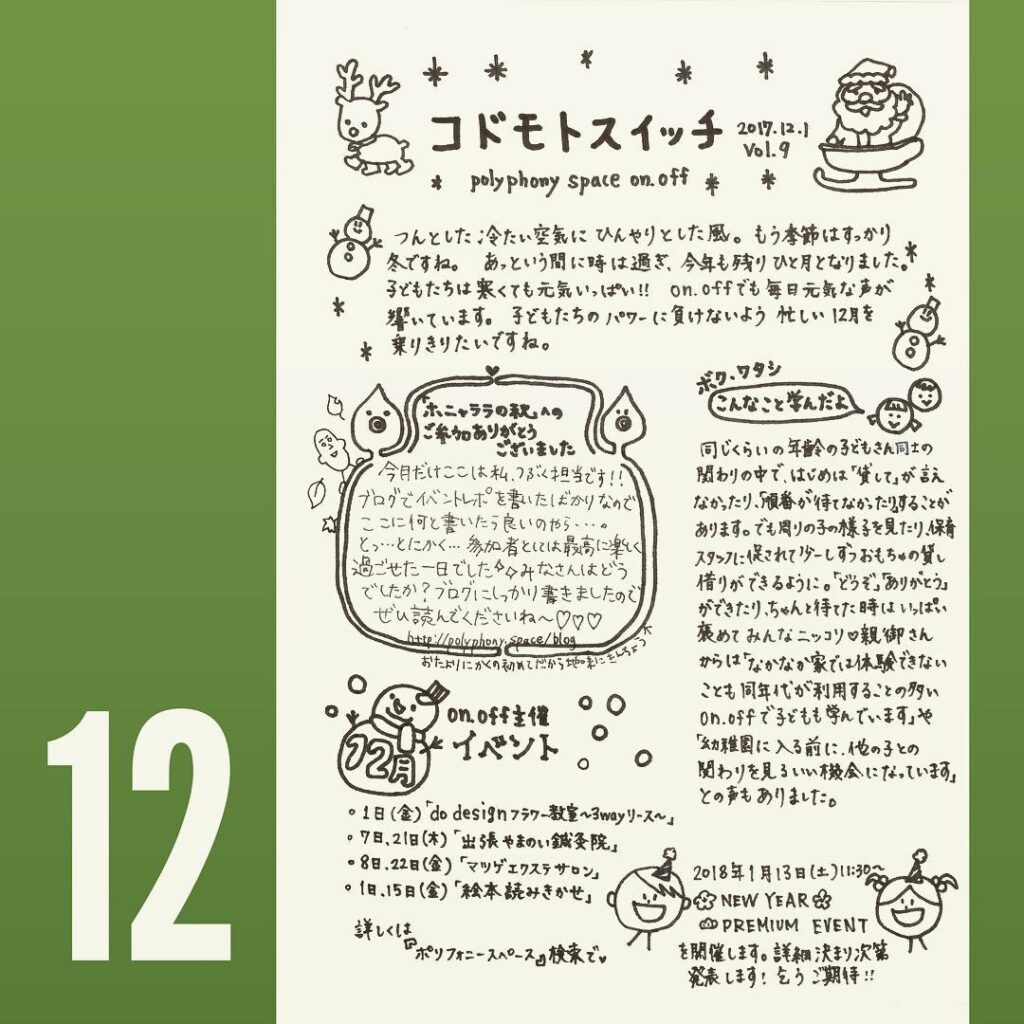 12
コドモトスイッチ
2017.12.1
Vol.9
polyphony space on.off
つんとした冷たい空気に ひんやりとした風。もう季節はすっかり
冬ですね。 あっという間に時は過ぎ、今年も残りひと月となりました。
子どもたちは寒くても元気いっぱい!! on.offでも毎日元気な声が
響いています。子どもたちのパワーに負けないよう 忙しい12月を
乗りきりたいですね。
「ホニャララの秋」への
ご参加ありがとう
ございました
今月だけここは私、つるく担当です!!
ブログでイベントレポを書いたばかりなので
ここに何と書いたら良いのやら・・・。
とっ…とにかく… 参加者としては最高に楽しく
過ごせた一日でした みなさんはどう
でしたか?ブログにしっかり書きましたので
ぜひ読んでくださいね〜♡♡♡
http://polyphony.space/blog
おたよりにかくの初めてだから地味にきんちょう
ボク、ワタシ
こんなこと学んだよ
同じくらいの年齢の子どもさん同士の
関わりの中で、はじめは「貸して」が言え
なかったり、「順番が待てなかったり」することが
あります。でも周りの子の様子を見たり、保育
スタッフに促されて少ーしずつおもちゃの貸し
借りができるように。「どうぞ」「ありがとう」
ができたり、ちゃんと待てた時はいっぱい
褒めて みんなニッコリ♥親御さん
からは「なかなか家では体験できない
ことも同年代が利用することの多い
on.offで子どもも学んでいます」や
「幼稚園に入る前に、他の子との
関わりを見るいい機会になっています」
との声もありました。
12月
on.off主催
イベント
・1日(金)「do designフラワー教室〜3wayリース〜」
・7日、21日(木)「出張やまのい鍼灸院」
・8日、22日(金)「マツゲエクステサロン」
・1日、15日(金)「絵本読みきかせ」
詳しくは
『ポリフォニースペース』検索で♥
2018年1月13日(土)11:30〜
NEW YEAR
PREMIUM EVENT
を開催します。詳細決まり次第
発表します! 乞うご期待!!